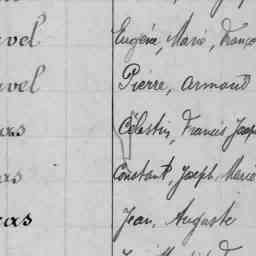 avel Eugène, Marie, Franço
avel Pierre, Armand
as Célestin, Francis Josep
as Constant, Joseph, Marie
as Jean, Auguste